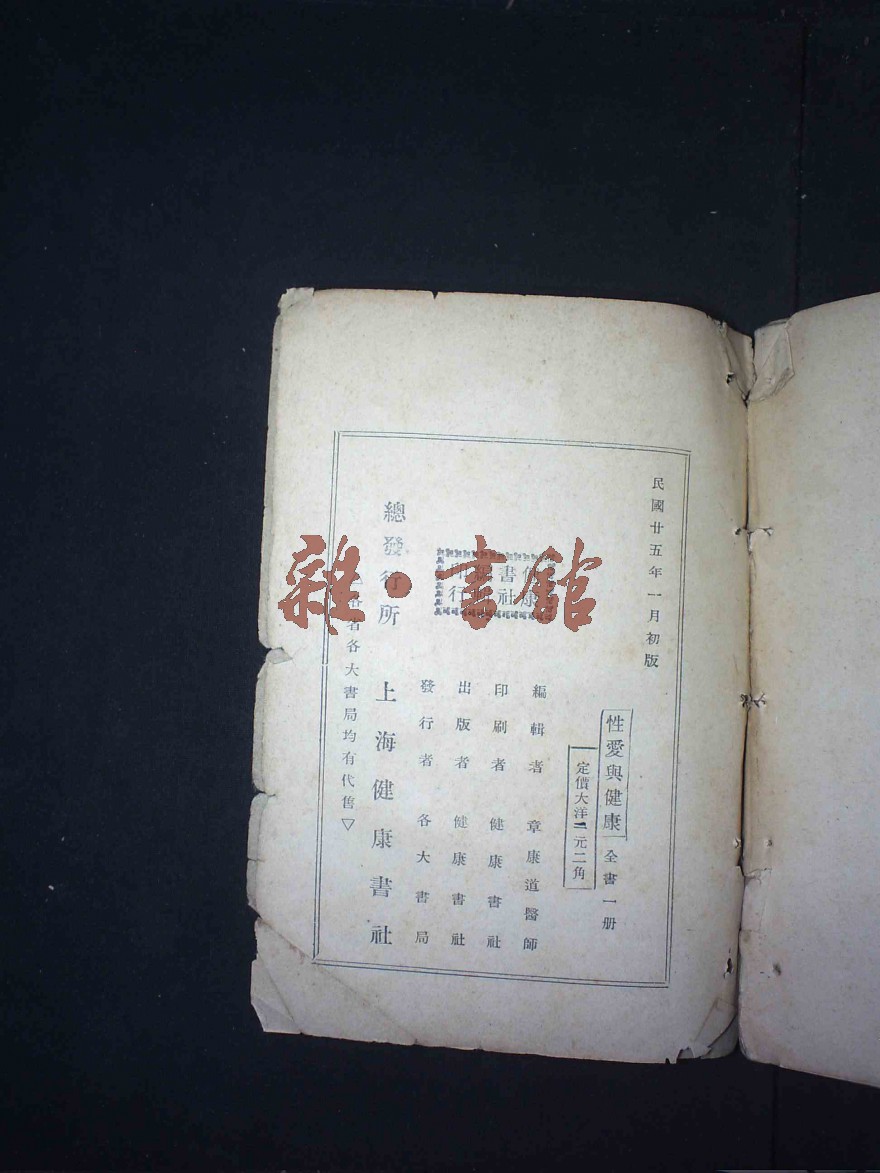 民國廿五年一月初版
性愛與健康 全書一册
定價大洋二元二角
編輯者 章康道醫師
印刷者 健康書社
出版者 健康書社
發行者 各大書局
書社
印行
總發行所 上海健康書社
各大書局均有代售▽
雜·書館